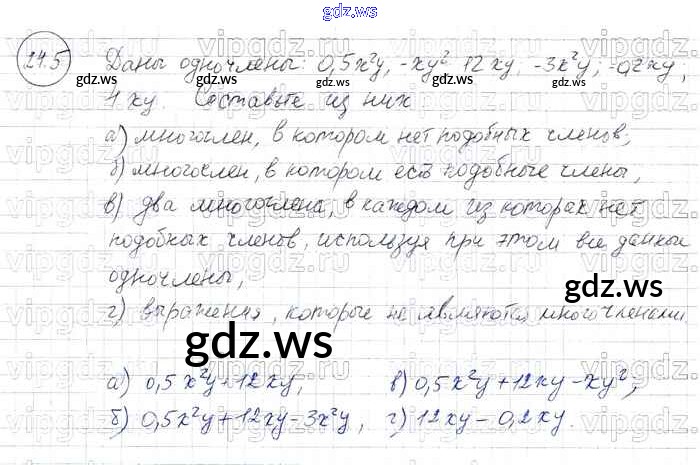 gdz.ws
24.5 Даны одночлены: 0,5x²y, -xy² 12xy, -3x²y; -0,2xy,
gdz.ws gdz.ws gdz.ws
1xy. Составьте из них
а) многочлен, в котором нет подобных членов;
б) многочлен, в котором есть подобные члены,
в) два многочлена, в каждом из которых нет
подобных членов, используя при этом все данные
одночлены,
gdz.ws
г) выражения, которые не являются многочленами
gdz.ws
а) 0,5x²y+12xy, в) 0,5x²y+12xy-xy²;
б) 0,5x²y+12xy-3x²y, г) 12xy-0,2xy.
gdz.ws gdz.ws gdz.ws
gdz.ws